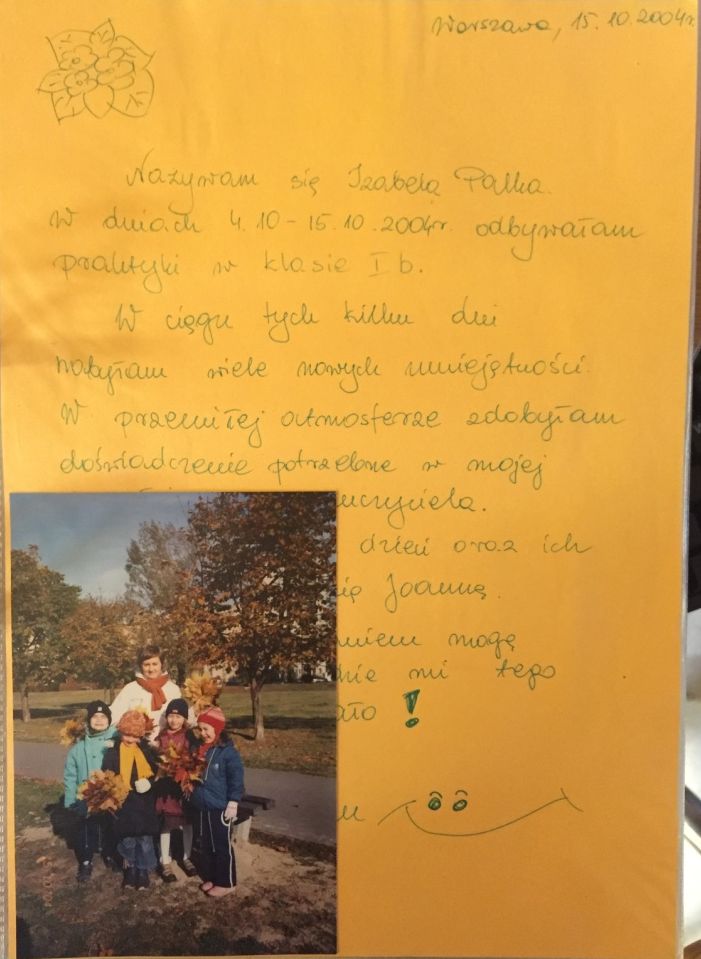 Warszawa, 15.10.2004r.
Nazywam się Izabela Pałka.
W dniach 4.10 - 15.10.2004r. odbywałam
praktyki w klasie I b.
W ciągu tych kilku dni
nabyłam wiele nowych umiejętności.
W przemiłej atmosferze zdobyłam
doświadczenie potrzebne w mojej
uczyciela.
dzień oraz ich
nię Joannę.
mogę
nie mi tego
ało !